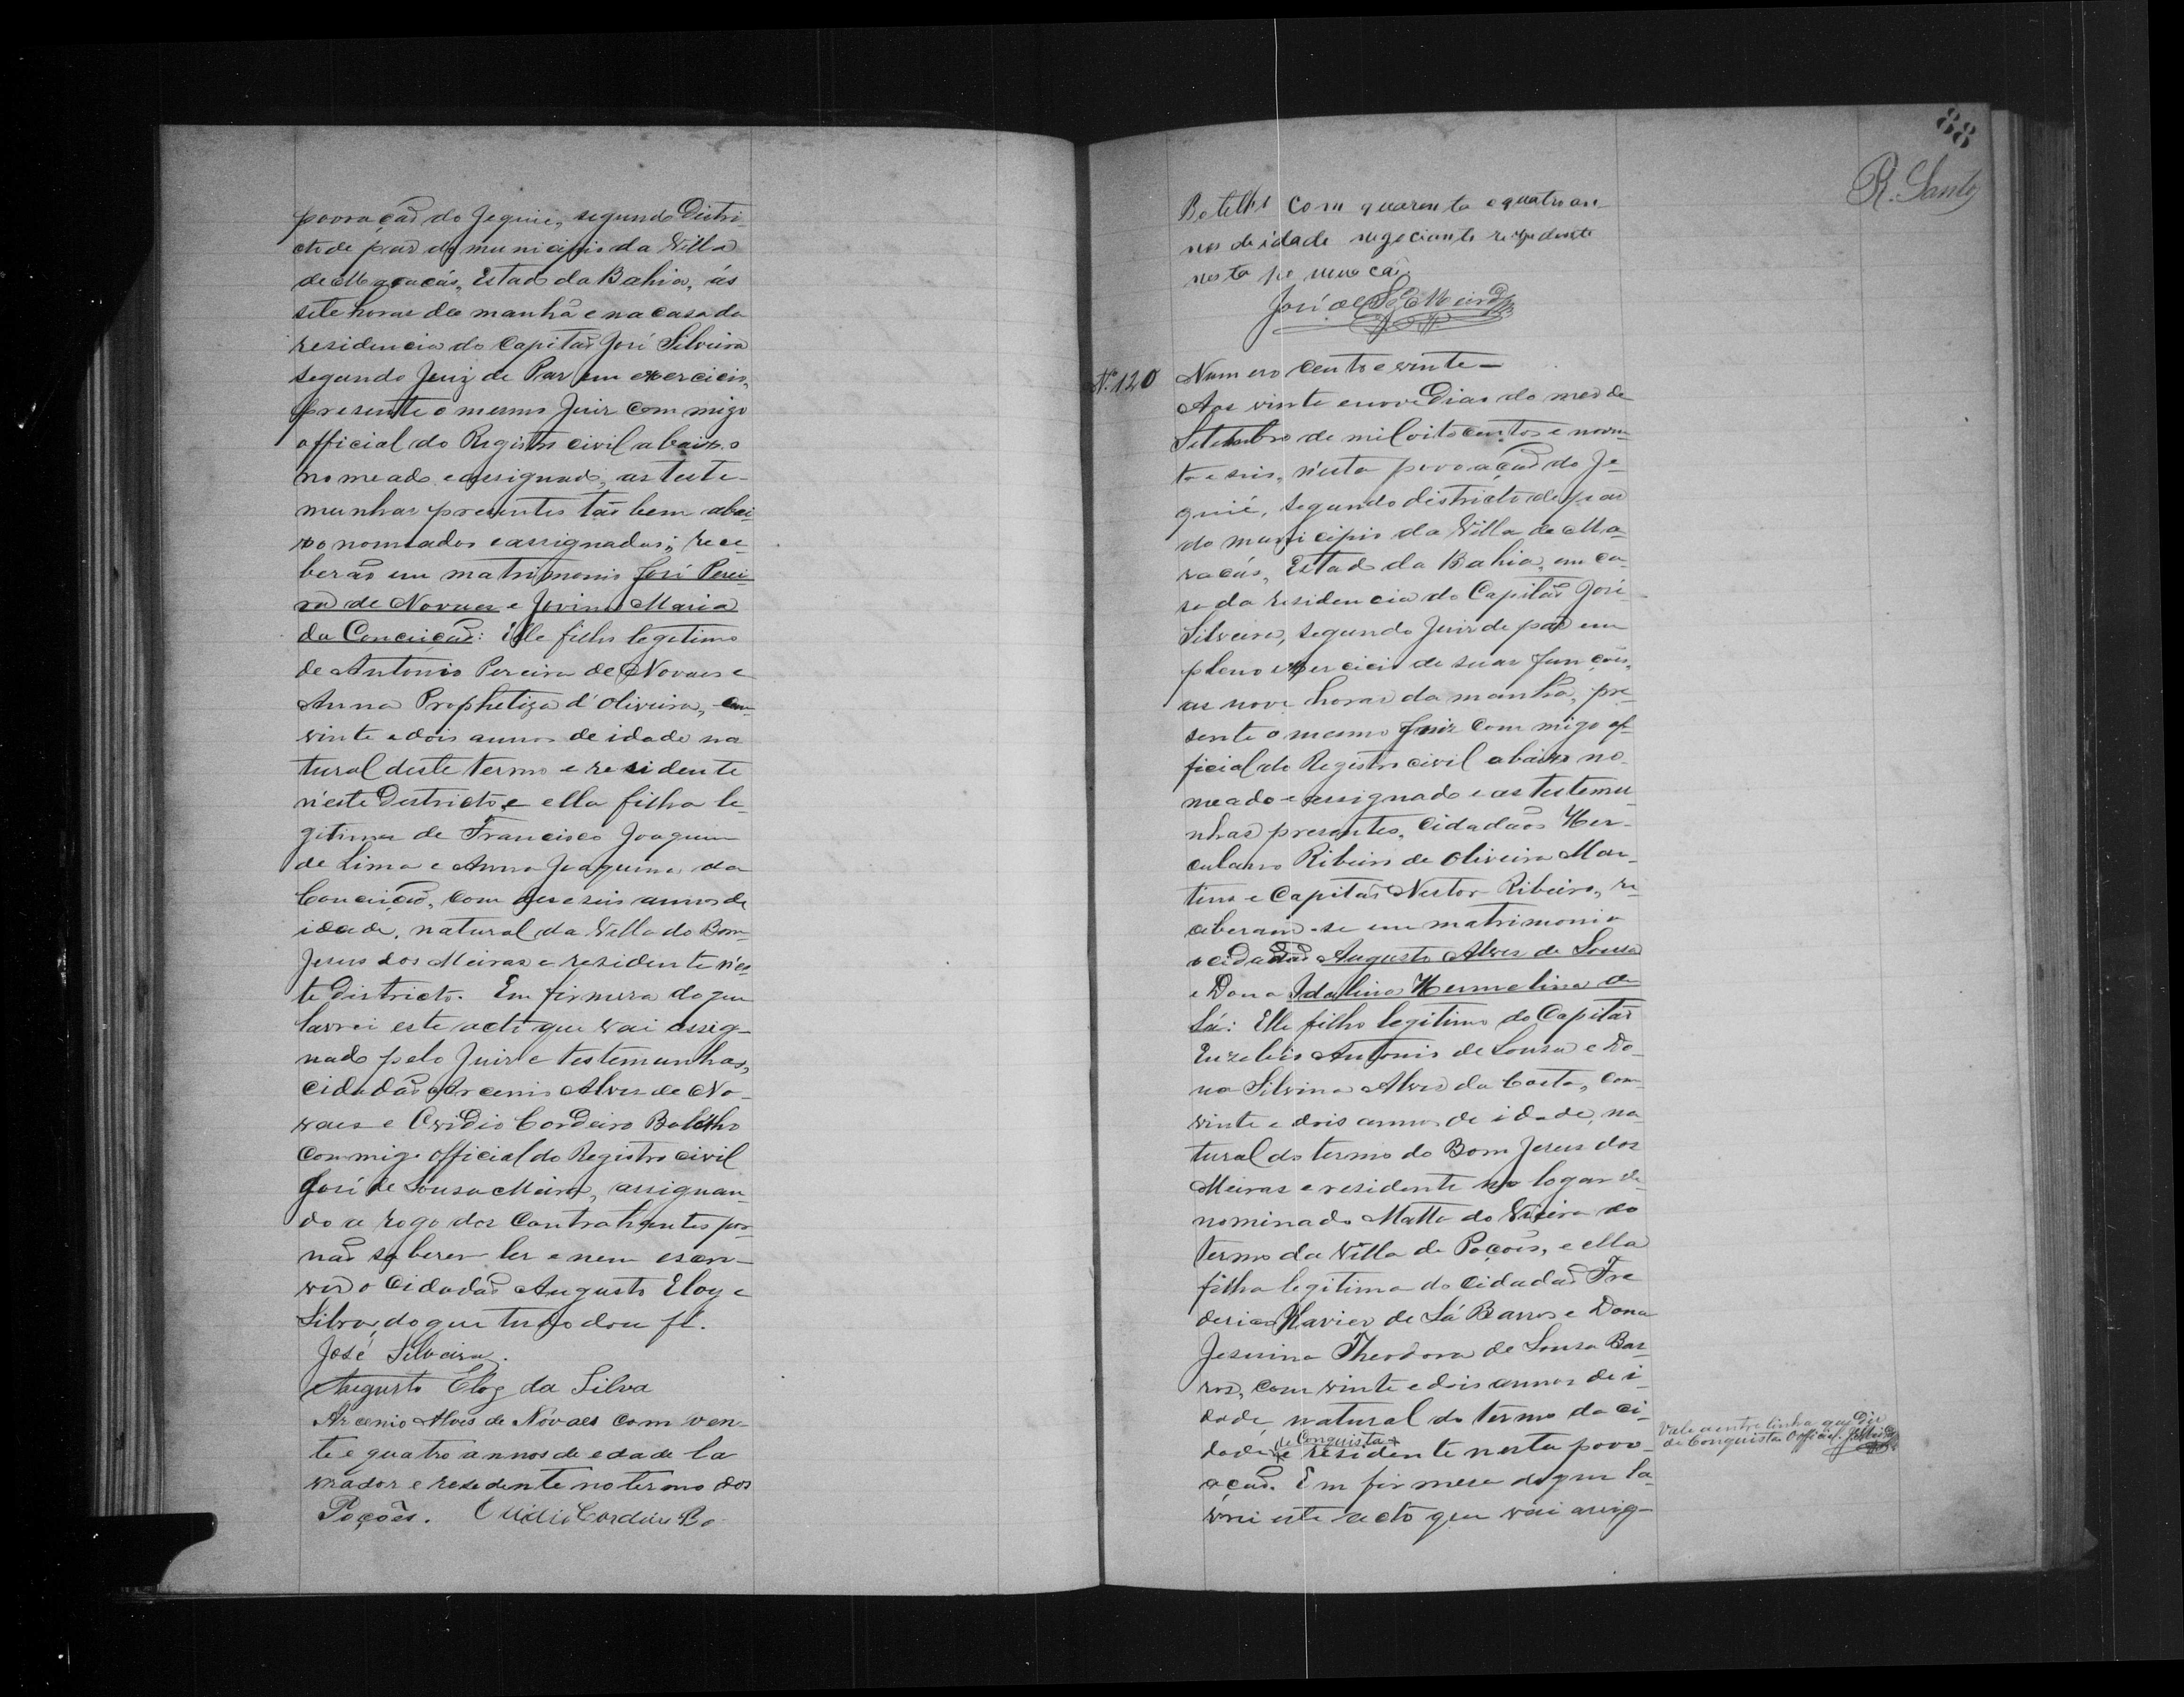 povoação do Jequié, segundo Distri-
cto de paz do municipio da Villa
de Maracás, Estado da Bahia, ás
sete horas da manhã e na casa da
residencia do Capitão José Silveira
segundo Juiz de Paz em exercicio,
presente o mesmo Juiz commigo
official do Registro civil abaixo
nomeado e assignado, as teste-
munhas presentes tão bem abai-
xo nomeados e assignados; rece-
berão em matrimonio José Perei-
ra de Novaes e Jovina Maria
da Conceição: Elle filho legitimo
de Antonio Pereira de Novaes e
Anna Prophetiza d'Oliveira, com
vinte e dois annos de idade na
tural deste termo e residente
n'este Destricto, e ella filha le
gitima de Francisco Joaquim
de Lima e Anna Joaquina da
Conceição, com deseseis annos de
idade, natural da Villa do Bom
Jesus dos Meiras e residente n'es-
te Districto. Em firmesa do que
lavrei este acto que vai assig-
nado pelo Juiz e testemunhas,
cidadãos Arcenio Alves de No-
vaes e Ovidio Cordeiro Botelho
commigo official do Registro civil
José de Sousa Meira, assignan-
do a rogo dos Contrahentes por
não saberem ler e nem escre-
ver o Cidadão Augusto Eloy e
Silva, do que tudo dou fé.
José Silveira.
Augusto Eloy da Silva
Arcenio Alves de Nóvaes com ven-
te e quatro annos de edade la
vrador e resedente no termo dos
Poções. Ovidio Cordeiro Bo-
88
R. Santos
Botelho com quarenta e quatro an-
nos de idade negociante residente
nesta povuacão.
José de Sª Meira
Nº 120 Numero cento e vinte—
Aos vinte e nove Dias do mes de
Setembro de mil oito centos e noven-
ta e seis, n'esta povoação do Je-
quié, segundo districto de paz
do municipio da Villa de Ma-
racás, Estado da Bahia, em ca-
sa da residencia do Capitão José
Silveira, segundo Juiz de paz em
pleno exercicio de suas funcções,
as nove horas da manhã, pre-
sente o mesmo Juiz commigo of-
ficial do Registro civil abaixo no-
meado e assignado e as testemu-
nhas presentes, Cidadãos Her-
culano Ribeiro de Oliveira Mar-
tins e Capitão Nestor Ribeiro, re
ceberam-se em matrimonio
o cidadão Augusto Alves de Sousa
e Dona Idalina Hermelina de
Sá: Elle filho legitimo do Capitão
Euzebio Antonio de Sousa e Do-
na Silvina Alves da Costa, com
vinte e dois annos de idade, na
tural do termo do Bom Jesus dos
Meiras e residente no logar de
nominado Matta do Vieira do
termo da Villa de Poções, e ella
filha legitima do Cidadão Fre
derico Xavier de Sá Barros e Dona
Jesuina Theodora de Sousa Bar-
ros, com vinte e dois annos de i-
dade natural do termo da ci-
de Conquista
dade e residente nesta povo-
ação. Em firmesa do que la
vrei este acto que vai assig-
Vale a entre linha que Diz
de Conquista Official.